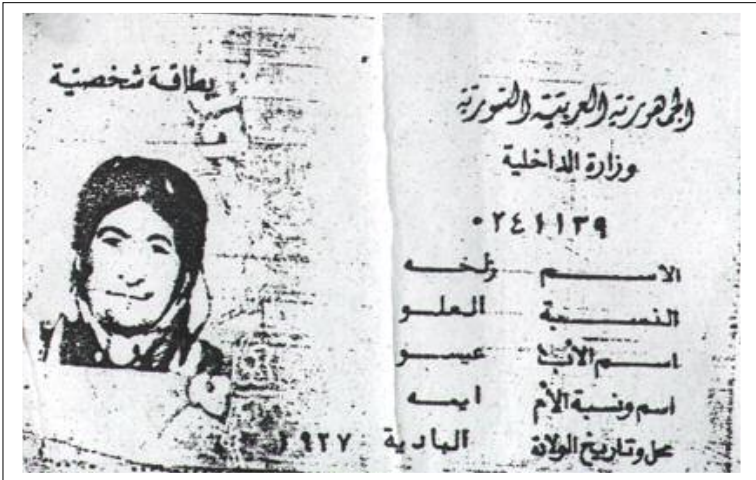 بطاقة شخصية
الجمهورية العربية السورية
وزارة الداخلية
٠٢٤١١٣٩
الاسم زلخه
النسبة العلو
اسم الأب عيسو
اسم ونسبة الأم ايمه
محل وتاريخ الولادة البادية ١٩٢٧